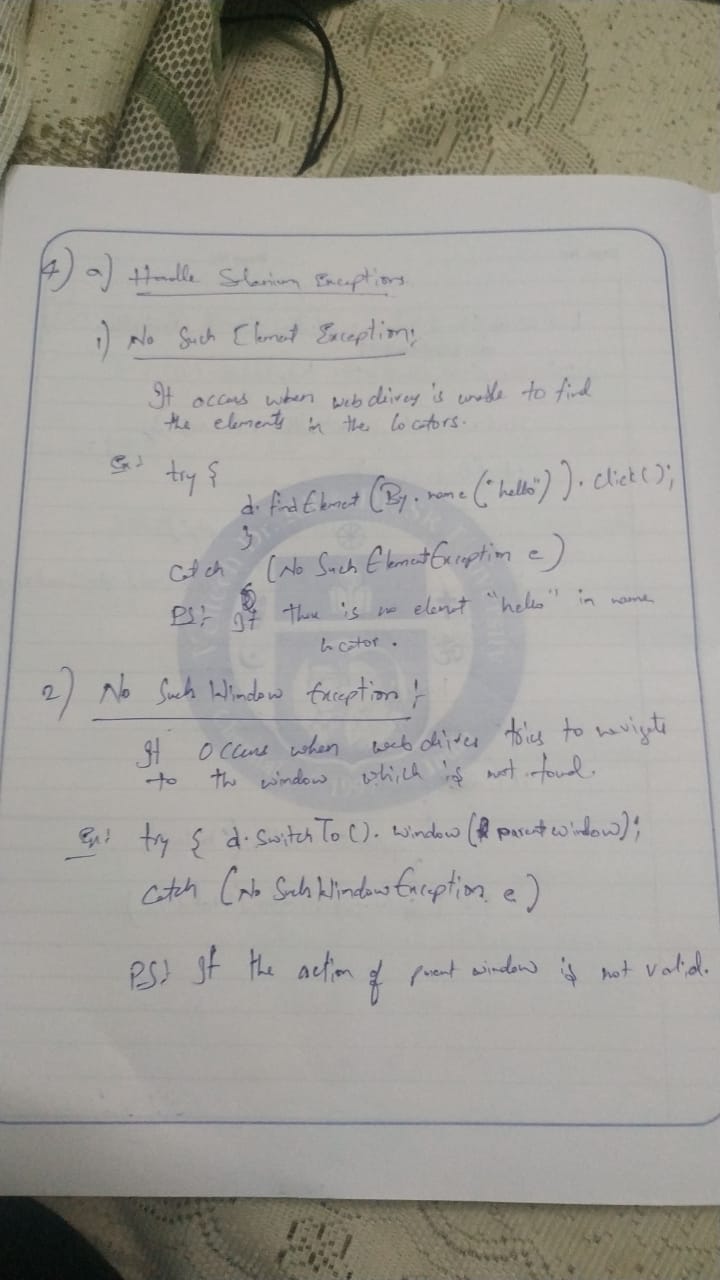 4) a) Handle Selenium Exceptions
i) No Such Element Exception:
It occurs when web driver is unable to find
the elements in the locators.
Ex: try {
d. find Element (By. name ("hello")). click();
}
catch (No Such Element Exception e)
PS: If there is no element "hello" in name
locator.
2) No Such Window Exception:
It occurs when web driver tries to navigate
to the window which is not found.
Ex: try { d. Switch To (). window (parent window);
catch (No Such Window Exception e)
PS: If the action of parent window is not valid.